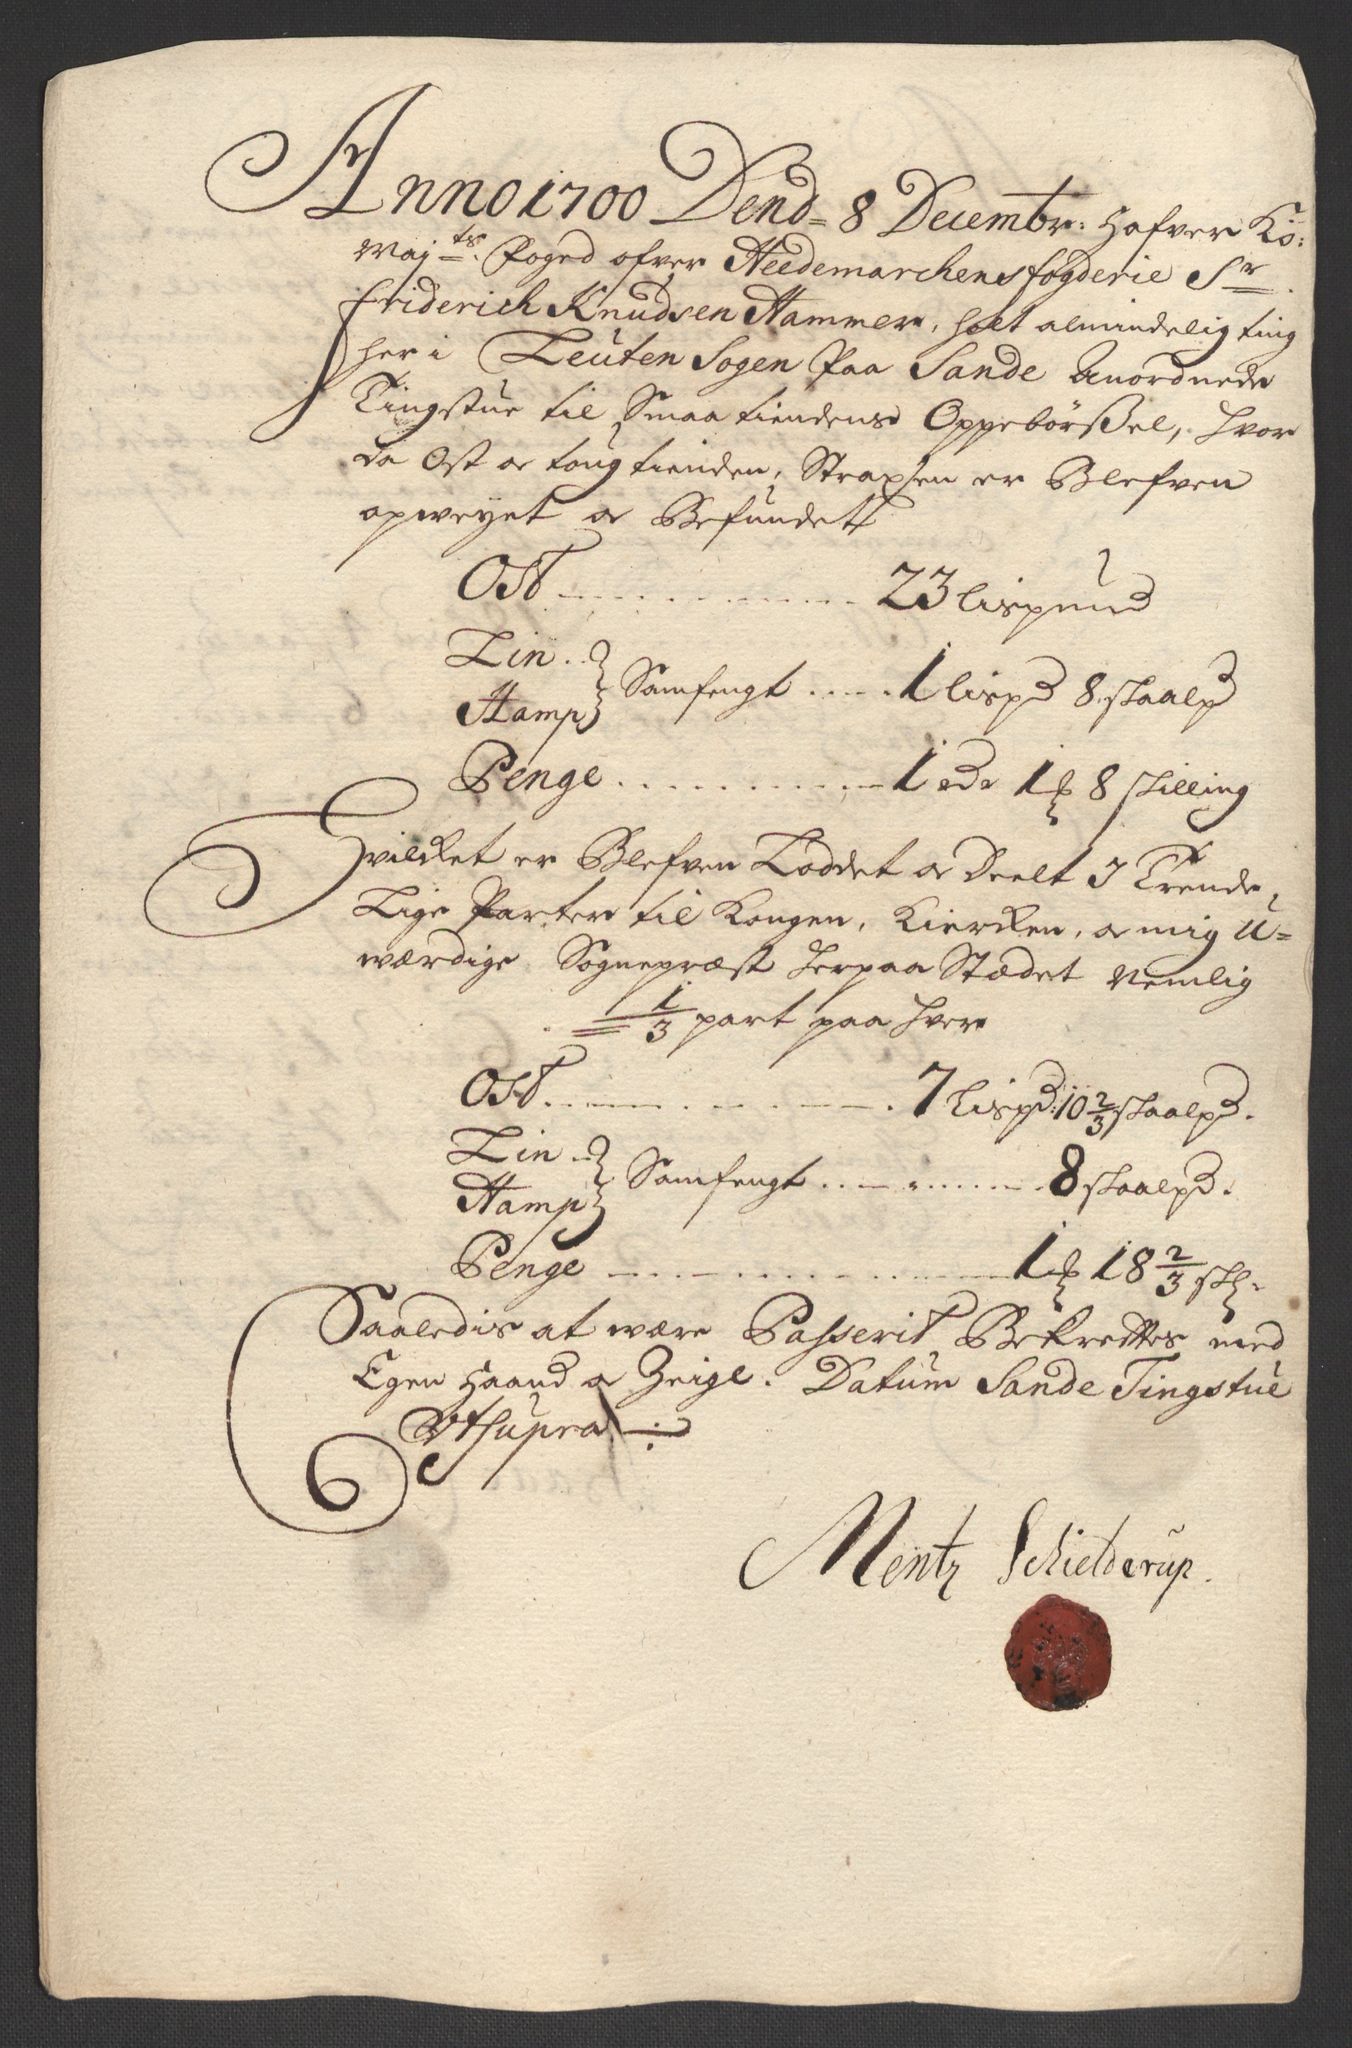 Anno 1700 Dend= 8 Decembr: Hafver Ko:
Maj.ts Foged ofver Heedemarchens fogderie Sr
Friderich Knudsen Hammer, holt almindelig ting
her i Leuten Sogen Paa Sande Anordnede
Tingstue til Smaa tiendens Oppebørßel, hvor
da Ost oc toug tienden, Strapsen er Blefven
opweyet oc Befundett
Ost 23 lispund
Lin
Hamp Samfengt 1 lispd 8 skaalpd
Penge 1 rd 1 ℔ 8 skilling
Hvilcket er Blefven Loddet oc Deelt I Trende
Lige Parter til Kongen, Kiercken, oc mig U=
wærdige Sognepræst herpaa Stædet Nemlig
1/3 part paa hver
Ost 7 Lispd: 10 2/3 skaalpd.
Lin
Hamp Samfengt 8 skaalpd.
Penge 1 ℔ 18 2/3 sk
Saaledis at være Passerit Bekrefftes med
Egen Haand oc Zeige. Datum Sande Tingstue
Ut Supra
Mentz Schielderup.